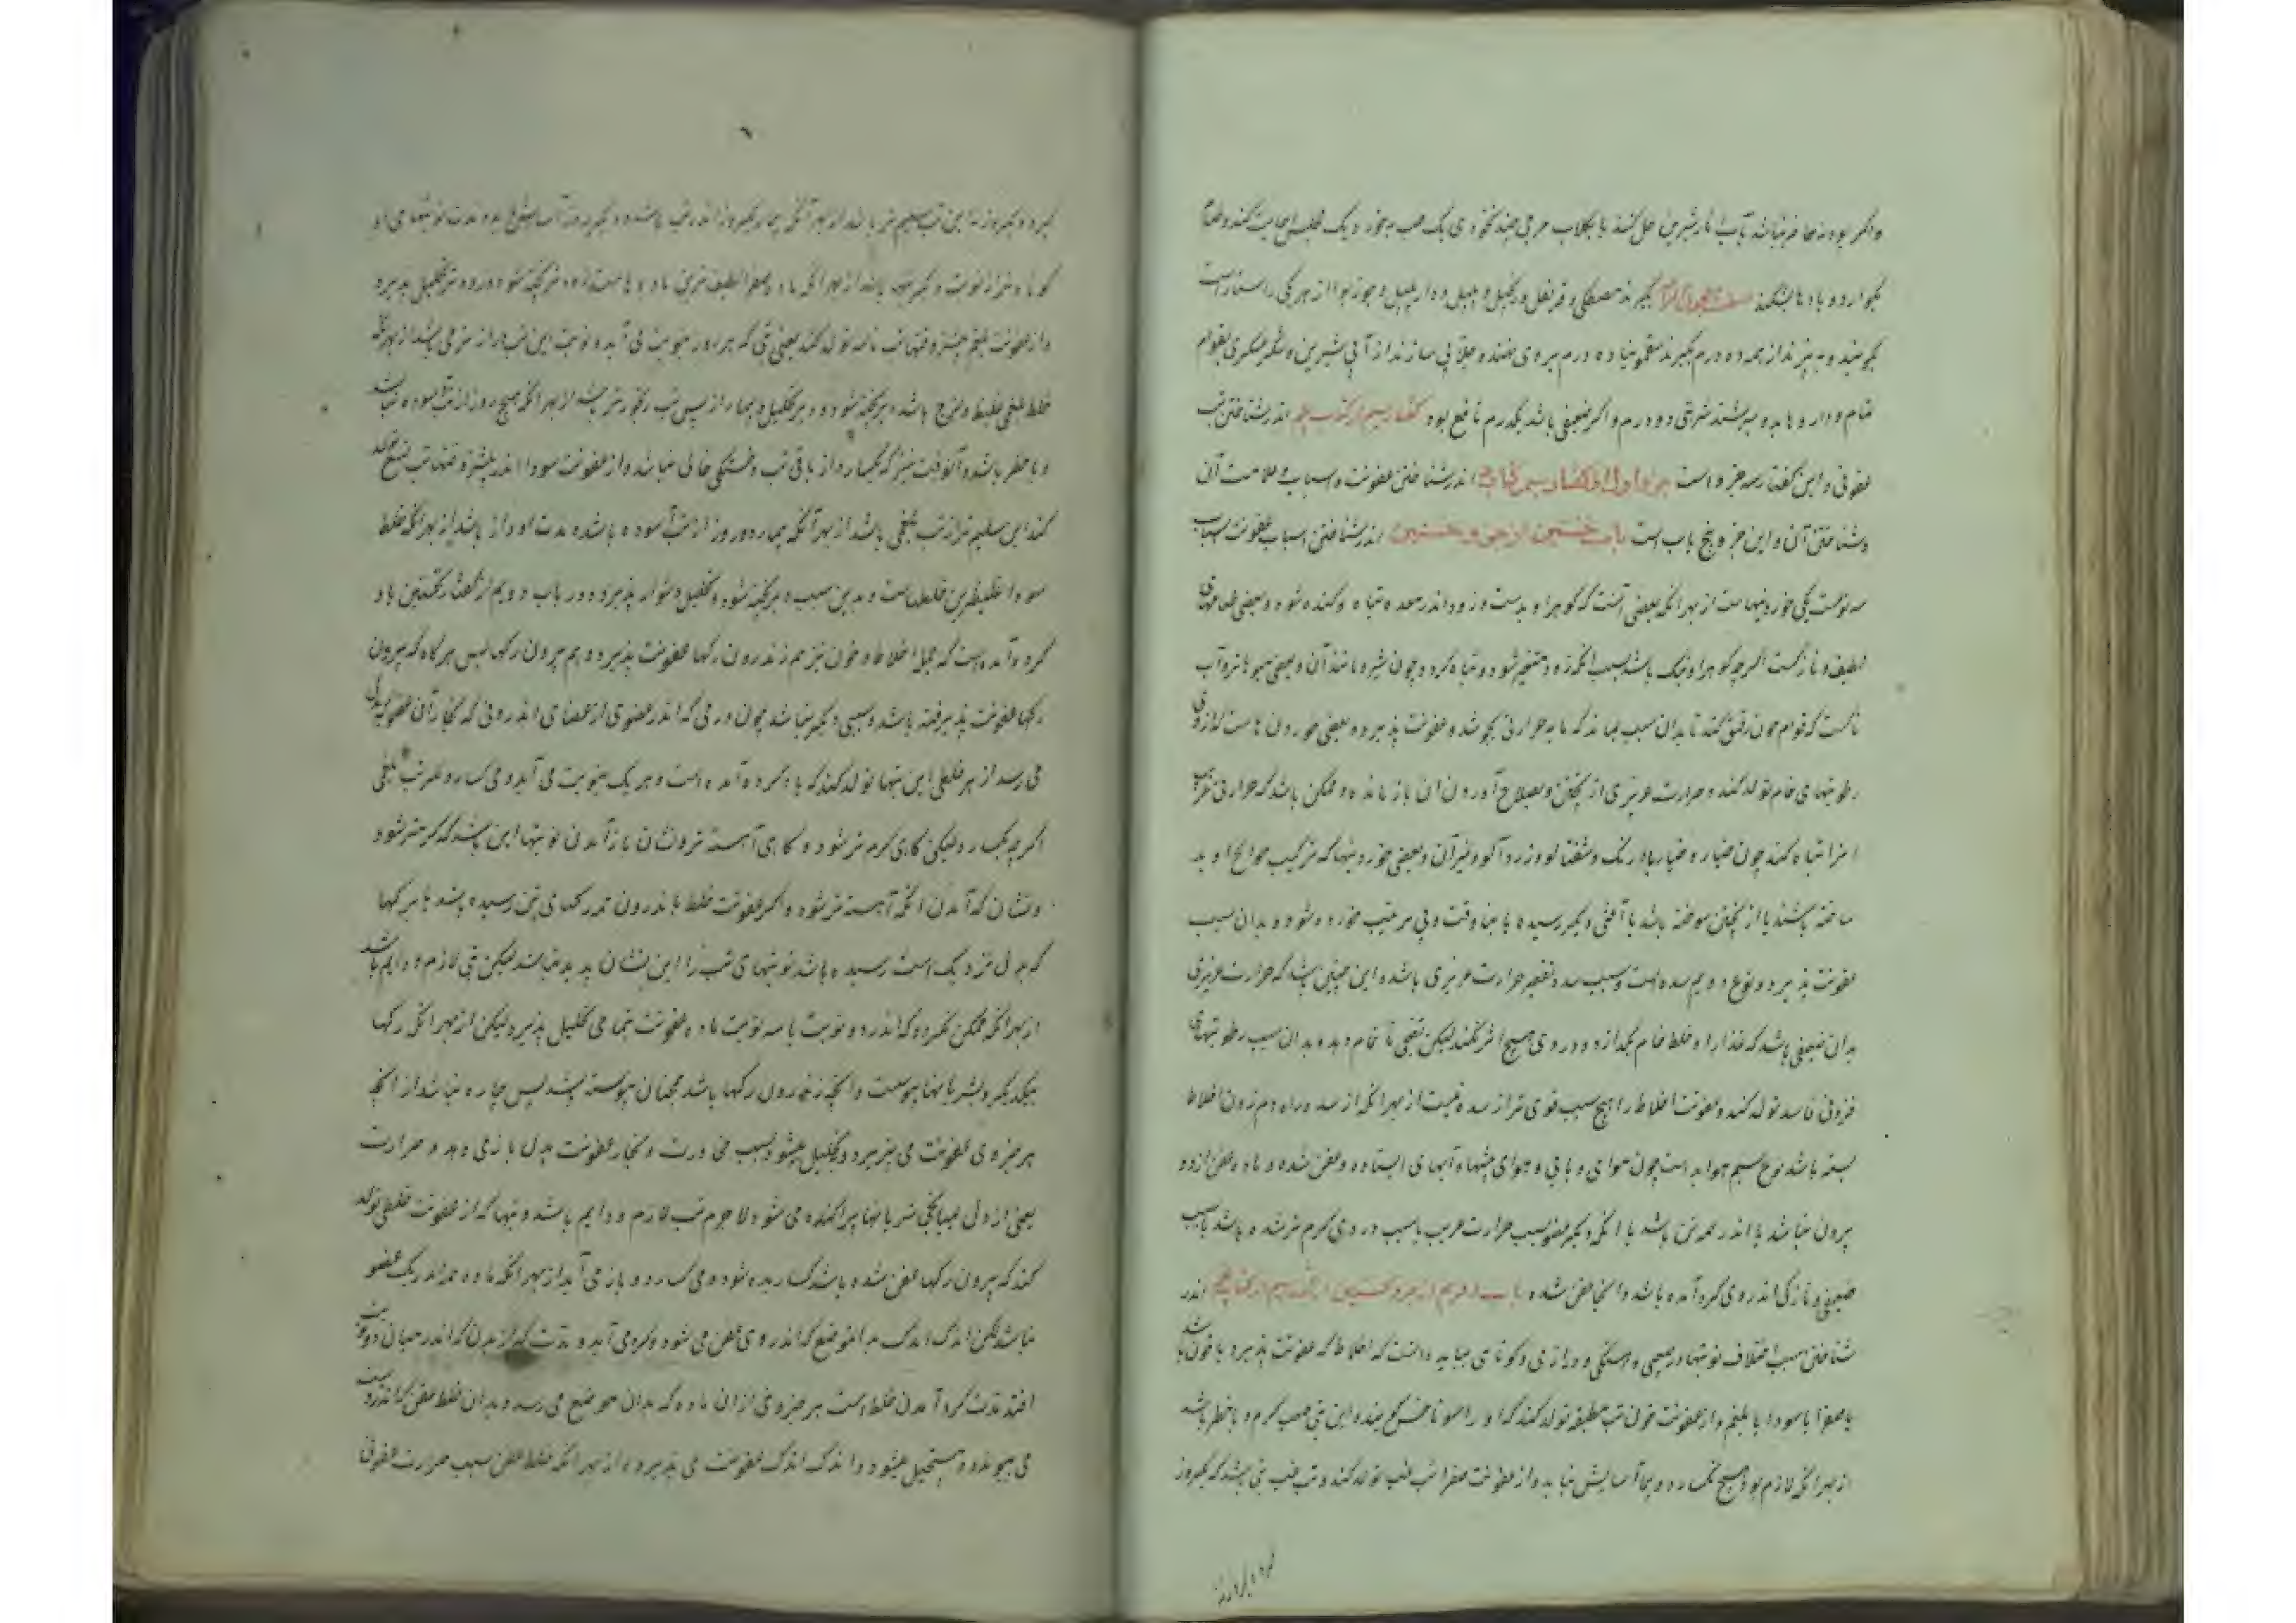 واگر بودنه حاضر نباشد بآب انار شیرین حل کنند یا بکلاب هر حبی چند نخودی یک حب بخورد یک مجلس اجابت کند و طعام
بکوارد و بادها بشکند صفت معجون بگیرند مصطکی و قرنفل و زنجبیل و پلپل و دارپلپل و جوزبوا از هر یکی راستاراست
بکوبند و به پزند از همه ده درم بگیرند سقمونیا ده درم بروی نهند و جلابی سازند از آبی شیرین و شکر عسکری بقوام
تمام و داروها بدو بسرشند شربتی دو درم و اگر ضعیفی باشد یکدرم نافع بود گفتار سیم از کتاب اندر شناختن تب
عفونی و این گفتار سه جزو است جزو اول از گفتار سیم از کتاب اندر شناختن عفونت و اسباب و علامت آن
و شناختن آن و این جزو پنج باب است باب نخستین از جزو نخستین اندر شناختن اسباب عفونت اسباب
سه نوعست یکی خوردنیهاست از بهر آنکه بعضی آنست که گوهر او بدست و زود اندر معده تباه و کنده شود و بعضی طعامهای
لطیف و نازکست اگرچه گوهر او نیک باشد بسبب آنکه زود متغیر شود و تباه گردد چون شیر و مانند آن و بعضی میوها تر و آب
ناکست که قوام خون رقیق کند تا بدان سبب بماند که مایه حرارتی بجوشد و عفونت پذیرد و بعضی خوردن هاست که از وی
رطوبتهای خام تولد کند و حرارت غریزی از پختن و بصلاح آوردن آن باز ماند و ممکن باشد که حرارتی غریب
آنرا تباه کند چون خیار و خیار بادرنگ و شفتالو و زردآلو و غیر آن و بعضی خوردنیها که ترکیب حوالج او بد
ساخته باشند یا از پختن سوخته باشد یا آفتی دیگر رسیده یا بیوقت و بی ترتیب خورده شود و بدان سبب
عفونت پذیرد و نوع دویم سده است و سبب سده تقصیر حرارت غریزی باشد و این چنین باشد که حرارت غریزی
بدان ضعیفی باشد که غذا را و خلط خام بگدازد و در وی هیچ اثر نکند لیکن نضجی ناتمام دهد بدان سبب رطوبتهای
فزونی فاسد تولد کند و عفونت اخلاط را هیچ سبب قوی تر از سده نیست از بهر آنکه از سده راه دم زدن اخلاط
بسته باشد نوع سیم هوا بد است چون هوای وبایی و هوای بیشها و آبهای ایستاده و عفن شده و ماده عفن از دو
بیرون نباشد یا اندر همه تن باشد یا اندر یک عضو بسبب حرارت غریب یا سبب درد وی گرم تر شده باشد یا بسبب
ضعیفی و نازکی اندر وی گرد آمده باشد و آنجا عفن شده باب دویم از جزو نخستین از گفتار سیم از کتاب اندر
شناختن سبب اختلاف نوبتها در صعبی و آهستگی و درازی و کوتاهی بباید دانست که اخلاط که عفونت پذیرد یا خون باشد
یا صفرا یا سودا یا بلغم و از عفونت خون تب مطبقه تولد کند که او را سوناخس گویند و این تبی صعب گرم و باخطر باشد
از بهر آنکه لازم بود و هیچ نگسارد و بیمار آسایش نیابد و از عفونت صفرا تب غب تولد کند و تب غب تبی باشد که یکروز
گیرد و یکروز نه این تب سلیم تر باشد از بهر آنکه بیمار یکروز اندر تب باشد و دیگر روز آسایش یابد و مدت نوبتهای او
کوتاه تر از نوبت دیگر تبها باشد از بهر آنکه ماده صفرا لطیف ترین مادهاست زودتر پخته شود و زودتر تحلیل پذیرد
و از عفونت بلغم بیشتر وقتها تب نائبه تولد کند یعنی تبی که هر روز بنوبت می آید و نوبت این تب درازتر می باشد از بهر آنکه
خلط بلغمی غلیظ و لزج باشد دیر پخته شود و دیر تحلیل و بیمار از پس تب رنجورتر باشد از بهر آنکه هیچ روز از تب آسوده نباشد
و باخطر باشد و آنوقت نیز که بگسارد از باقی تب و خستکی خالی نباشد و از عفونت سودا اندر بیشتر وقتها تب ربع تولد
کند این سلیم تر از تب بلغمی باشد از بهر آنکه بیمار دو روز از تب آسوده باشد و مدت او دراز باشد از بهر آنکه خلط
سودا غلیظترین خلطهاست و بدین سبب دیر پخته شود و تحلیل دشوار پذیرد و در باب دویم از گفتار نخستین یاد
کرده آمده است که جمله اخلاط و خون نیز هم اندرون رگها عفونت پذیرد و هم بیرون رگها پس هرگاه که بیرون
رگها عفونت پذیرفته باشد و سببی دیگر نباشد چون ورمی که اندر عضوی از اعضای اندرونی که بخار آن عفونت بدل
می رسد از هر خلطی این تبها تولد کند که یاد کرده آمده است و هر یک بنوبت می آید و می گسارد و مگر تب بلغمی
اگرچه بگسارد لیکن گاهی گرم تر شود و گاهی آهسته تر و نشان باز آمدن نوبتها این باشد که گرم تر شود
و نشان گذاردن آنکه آهسته تر شود و اگر عفونت خلط باندرون همه رگهای تن رسیده باشد یا برگها
که بدل نزدیک است رسیده باشد نوبتهای تب را این نشان پدید نباشد لیکن تبی لازم و دایم باشد
از بهر آنکه ممکن نگردد که اندر دو نوبت یا سه نوبت ماده عفونت بتمامی تحلیل پذیرد لیکن از بهر آنکه رگها
بیکدیگر و بشریانها پیوست و آنچه اندرون رگها باشد همچنان پیوسته باشد پس چاره نباشد از آنچه
هر جزوی عفونت می پذیرد و تحلیل میشود بسبب مجاورت و بخار عفونت بدل باز می دهد و حرارت
یعنی از دل بمیانجی شریانها پراکنده می شود لاجرم تب لازم و دایم باشد و تبها که از عفونت خلطی تولد
کند که بیرون رگها عفن شده باشد گساریده شود و می گسارد و باز می آید از بهر آنکه ماده همه اندر یک عضو
نباشد لکن اندک اندک بدانموضع که اندر وی عفن می شود گرد می آید و مدت که اندر میان دو نوبت
افتد مدت گرد آمدن خلط است هر جزوی از آن ماده که بدان موضع می رسد و بدان خلط عفن که اندروست
می پیوندد و مستحیل میشود و اندک اندک عفونت می پذیرد از بهر آنکه خلط عفن بسبب حرارت عفونی